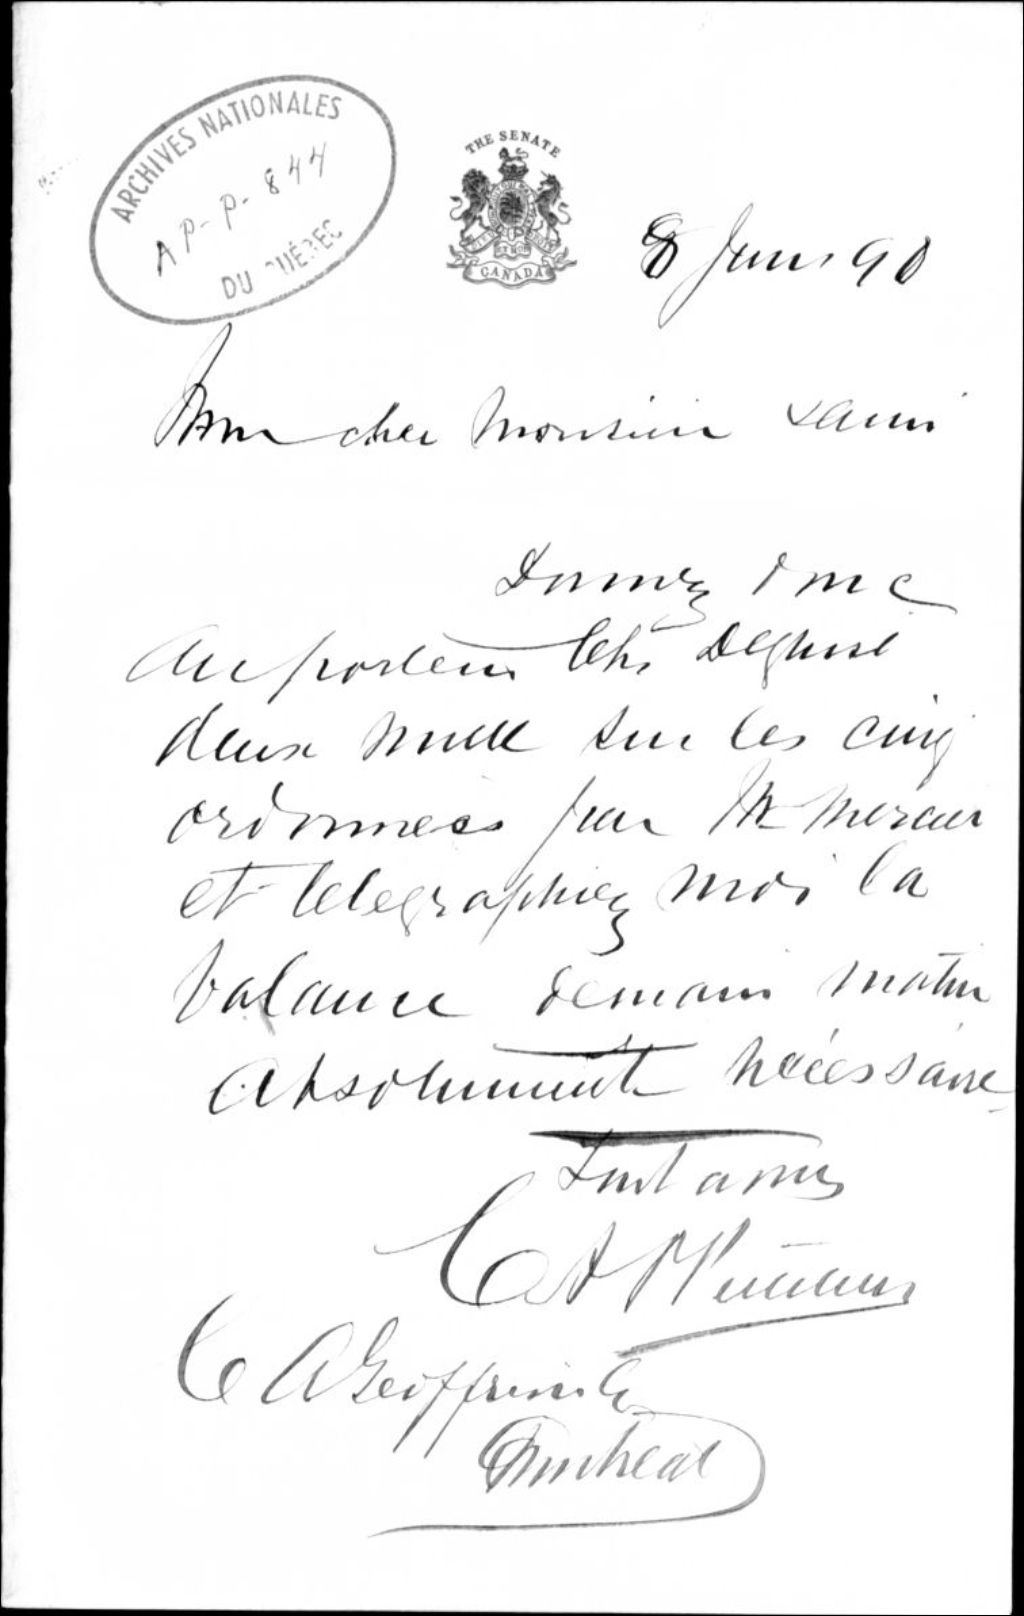 ARCHIVES NATIONALES
AP-P-844
DU QUÉBEC
THE SENATE
CANADA
8 90
Mon cher Monsieur
Donnez donc
Au porteur
deux mille sur les cinq
ordonnées par M Mercier
et telegraphiez moi la
balance demain matin
Absolument nécessaire
Tout a vous
C A P Pelletier
C A Geoffrion
Montreal